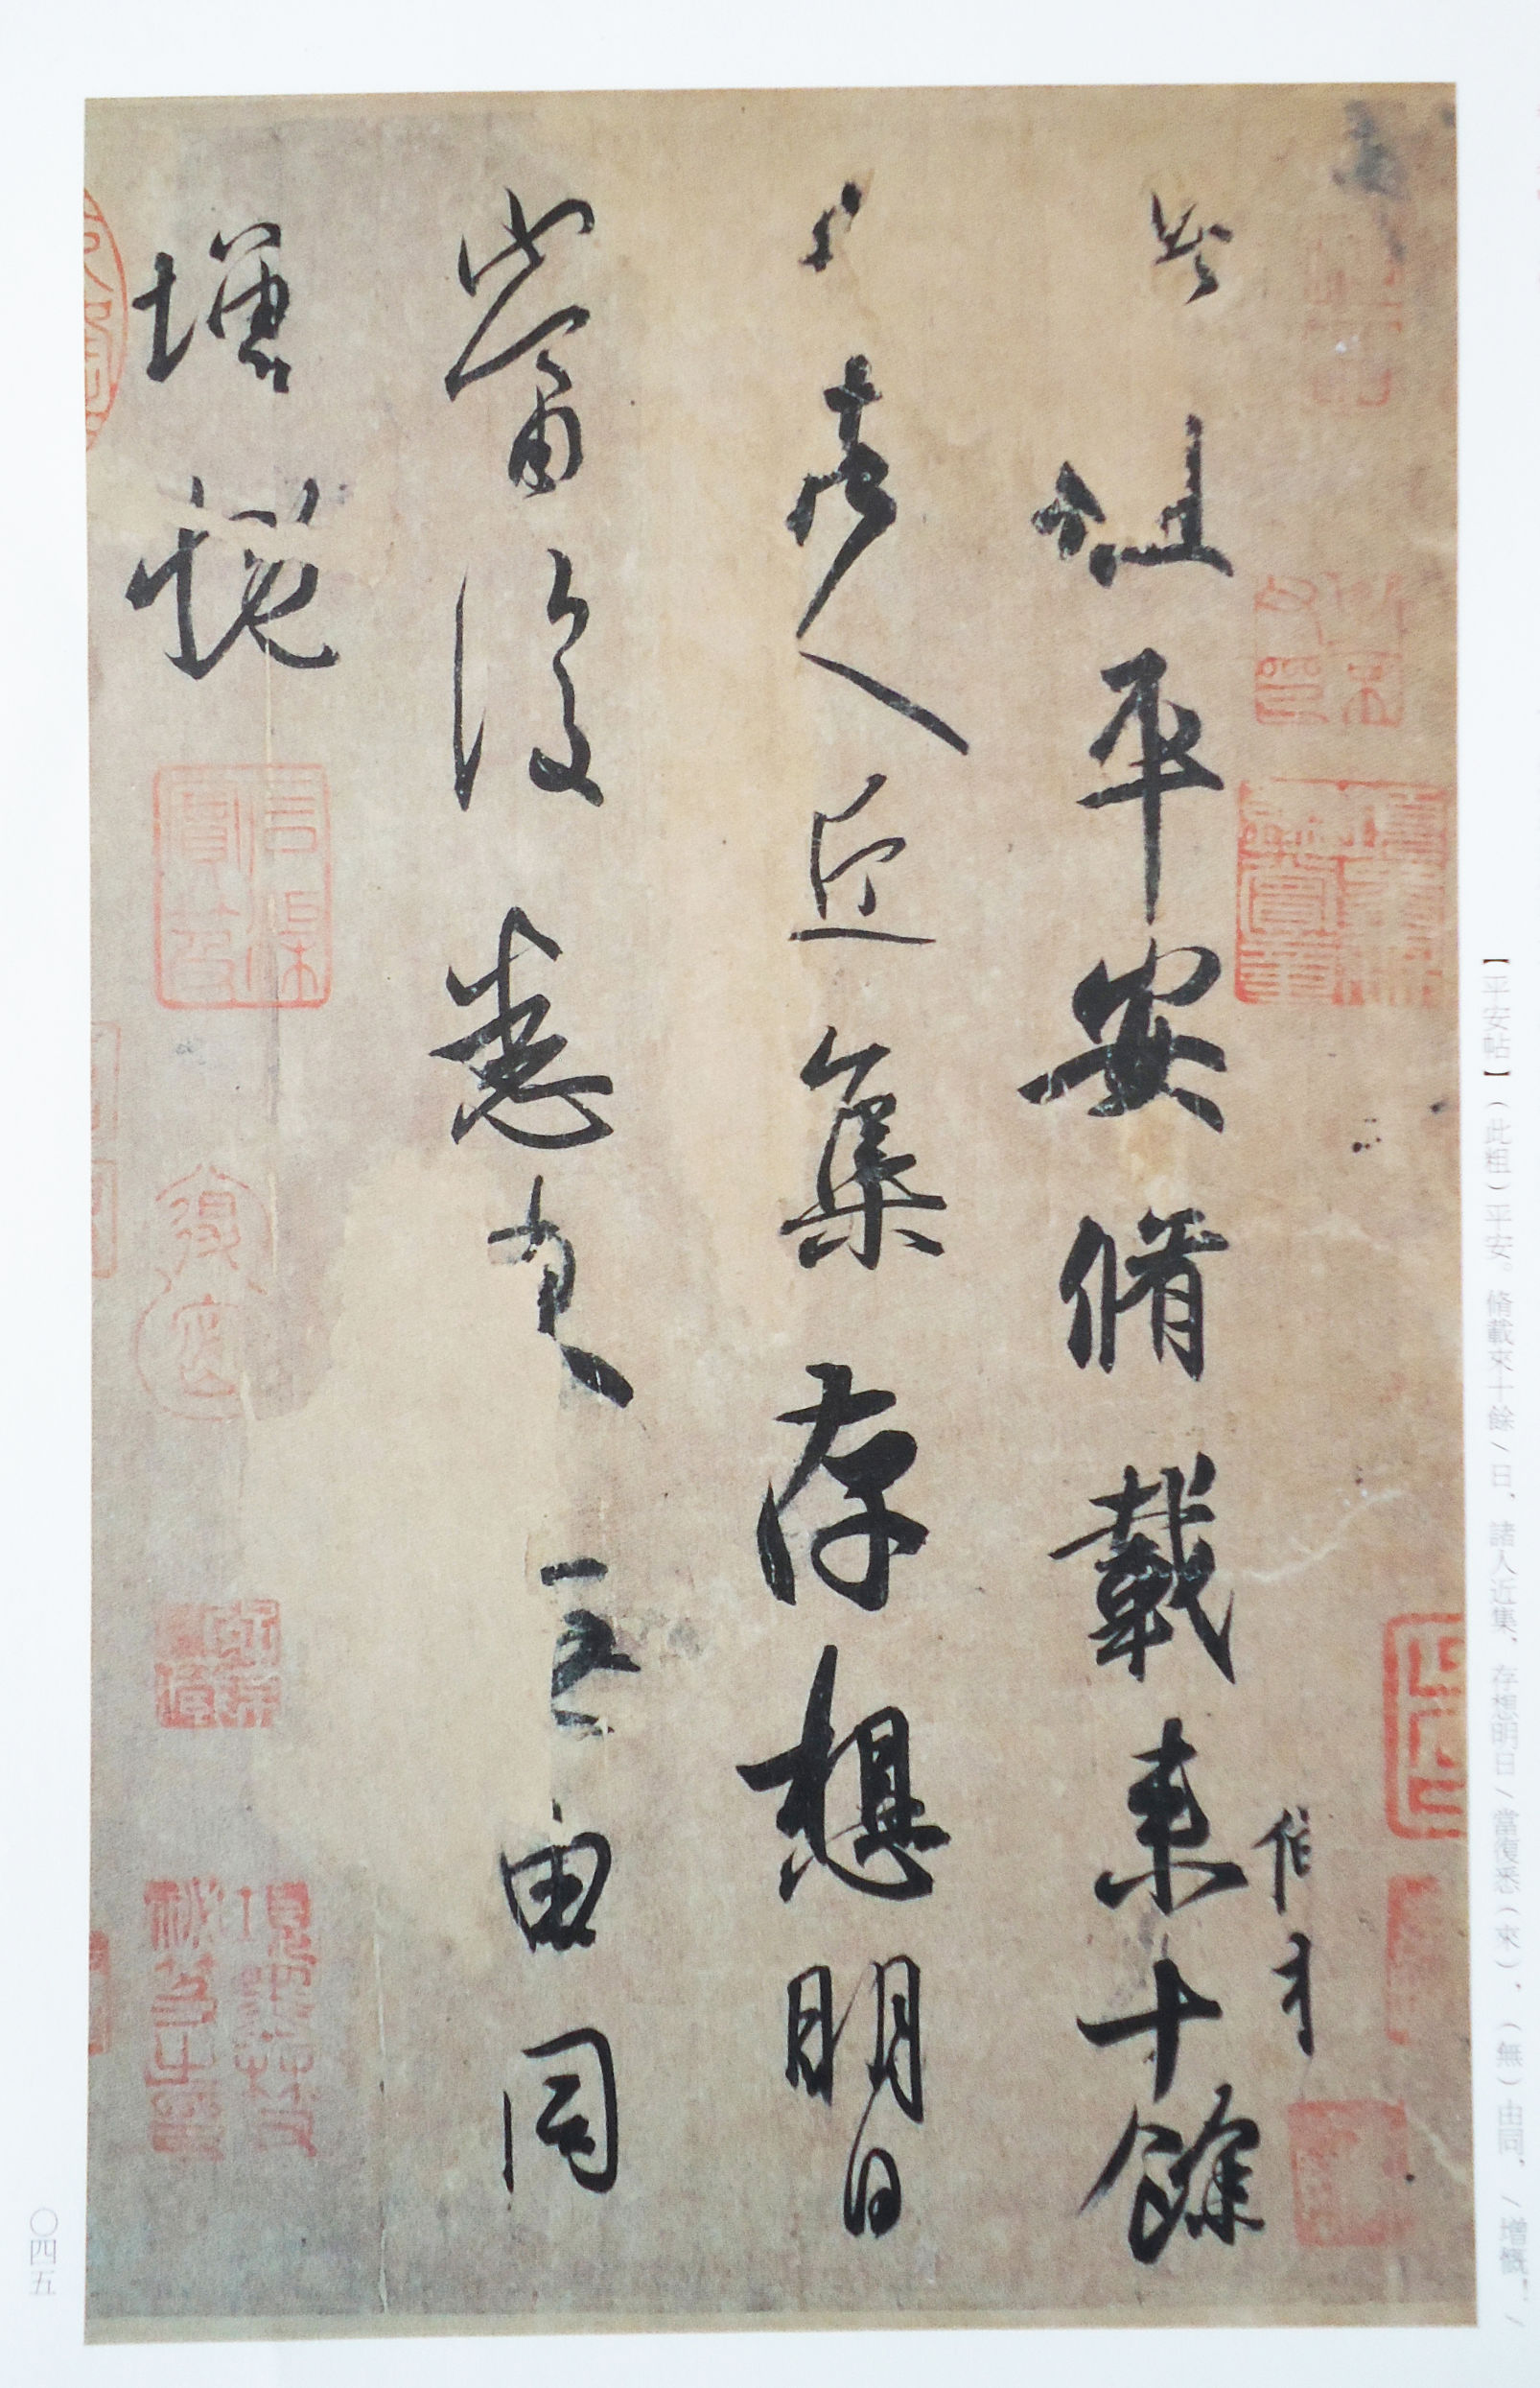 此粗平安脩載来十餘
日諸人近集存想明日
當復悉来無由同
增慨
【平安帖】（此粗）平安。脩載來十餘/日，諸人近集，存想明日/當復悉（來），（無）由同，/增慨。/
〇四五